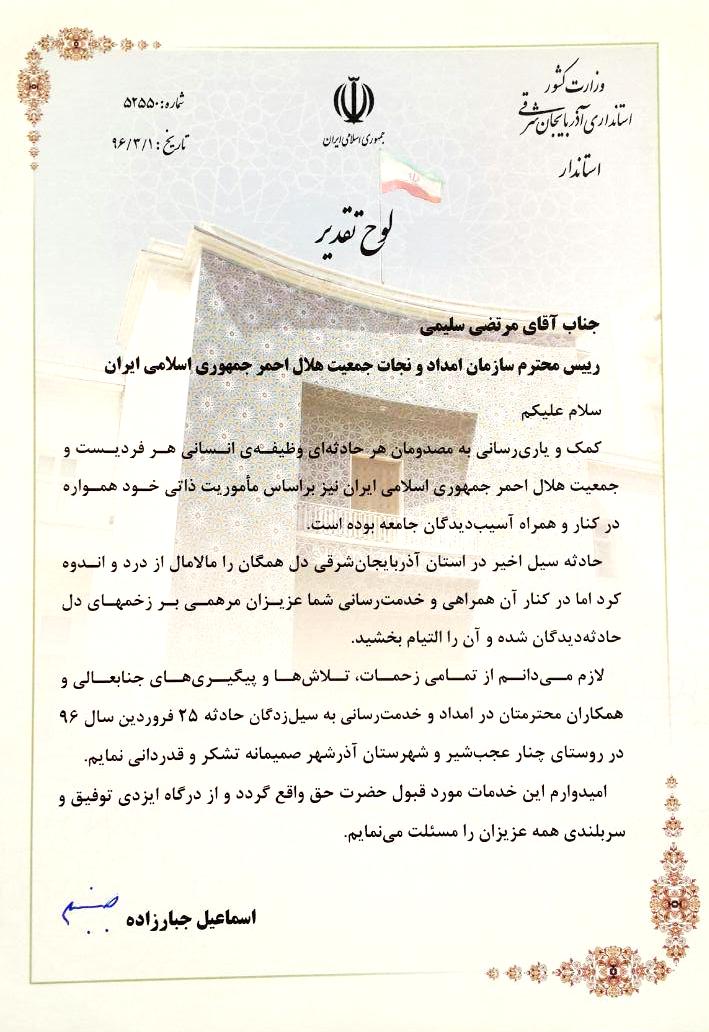 وزارت کشور
استانداری آذربایجان شرقی
استاندار
جمهوری اسلامی ایران
شماره: ۵۲۵۵۰
تاریخ: ۹۶/۳/۱
لوح تقدیر
جناب آقای مرتضی سلیمی
رییس محترم سازمان امداد و نجات جمعیت هلال احمر جمهوری اسلامی ایران
سلام علیکم
کمک و یاری‌رسانی به مصدومان هر حادثه‌ای وظیفه‌ی انسانی هر فردیست و
جمعیت هلال احمر جمهوری اسلامی ایران نیز براساس مأموریت ذاتی خود همواره
در کنار و همراه آسیب‌دیدگان جامعه بوده است.
حادثه سیل اخیر در استان آذربایجان‌شرقی دل همگان را مالامال از درد و اندوه
کرد اما در کنار آن همراهی و خدمت‌رسانی شما عزیزان مرهمی بر زخمهای دل
حادثه‌دیدگان شده و آن را التیام بخشید.
لازم می‌دانم از تمامی زحمات، تلاش‌ها و پیگیری‌های جنابعالی و
همکاران محترمتان در امداد و خدمت‌رسانی به سیل‌زدگان حادثه ۲۵ فروردین سال ۹۶
در روستای چنار عجب‌شیر و شهرستان آذرشهر صمیمانه تشکر و قدردانی نمایم.
امیدوارم این خدمات مورد قبول حضرت حق واقع گردد و از درگاه ایزدی توفیق و
سربلندی همه عزیزان را مسئلت می‌نمایم.
اسماعیل جبارزاده